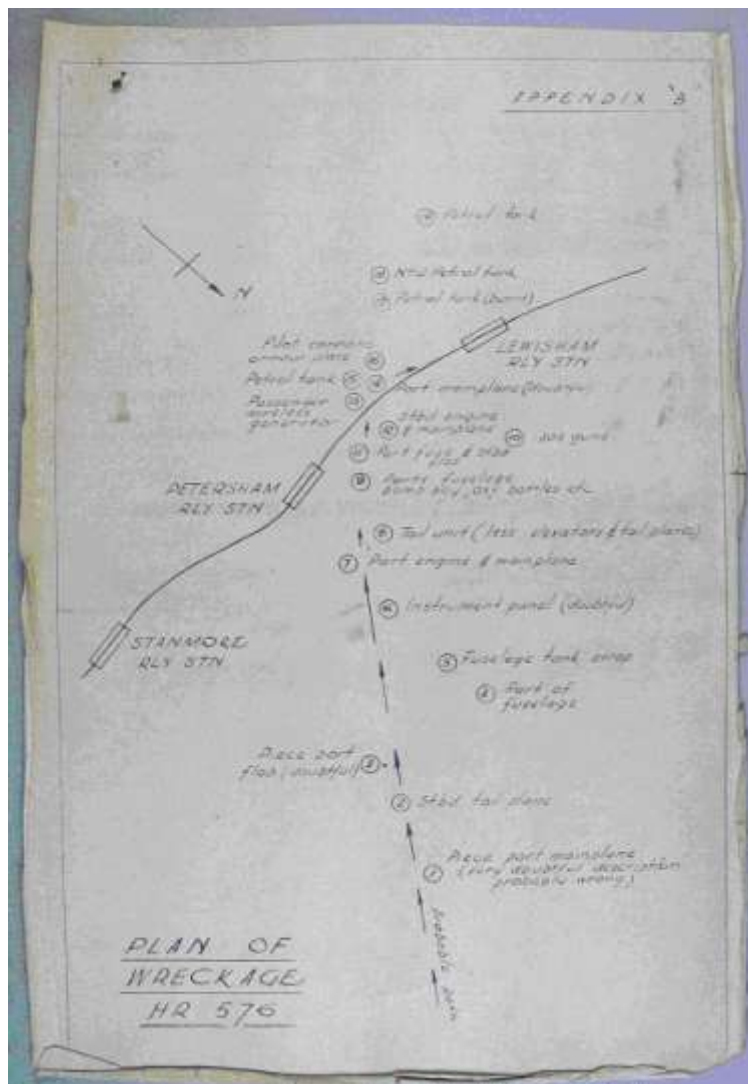 APPENDIX 'B'
Petrol tank
Petrol tank
Petrol tank (burnt)
N
LEWISHAM
RLY STN
armour plate 16
Petrol tank 15 14
Part mainplane (doubtful)
Passenger 13
wireless
generator
Stbd engine
12 & mainplane
10 guns
11 Part fuse &
PETERSHAM
RLY STN
Parts fuselage
bomb bay, oxy bottles etc
Tail unit (less elevators & tail plane)
7 Part engine & mainplane
6 Instrument panel (doubtful)
STANMORE
RLY STN
5 Fuselage tank strap
4 Part of
fuselage
Piece part
flap (doubtful) 3
2 Stbd tail plane
1 Piece part mainplane
(very doubtful description
probably wrong)
Probable path
PLAN OF
WRECKAGE
HR 576